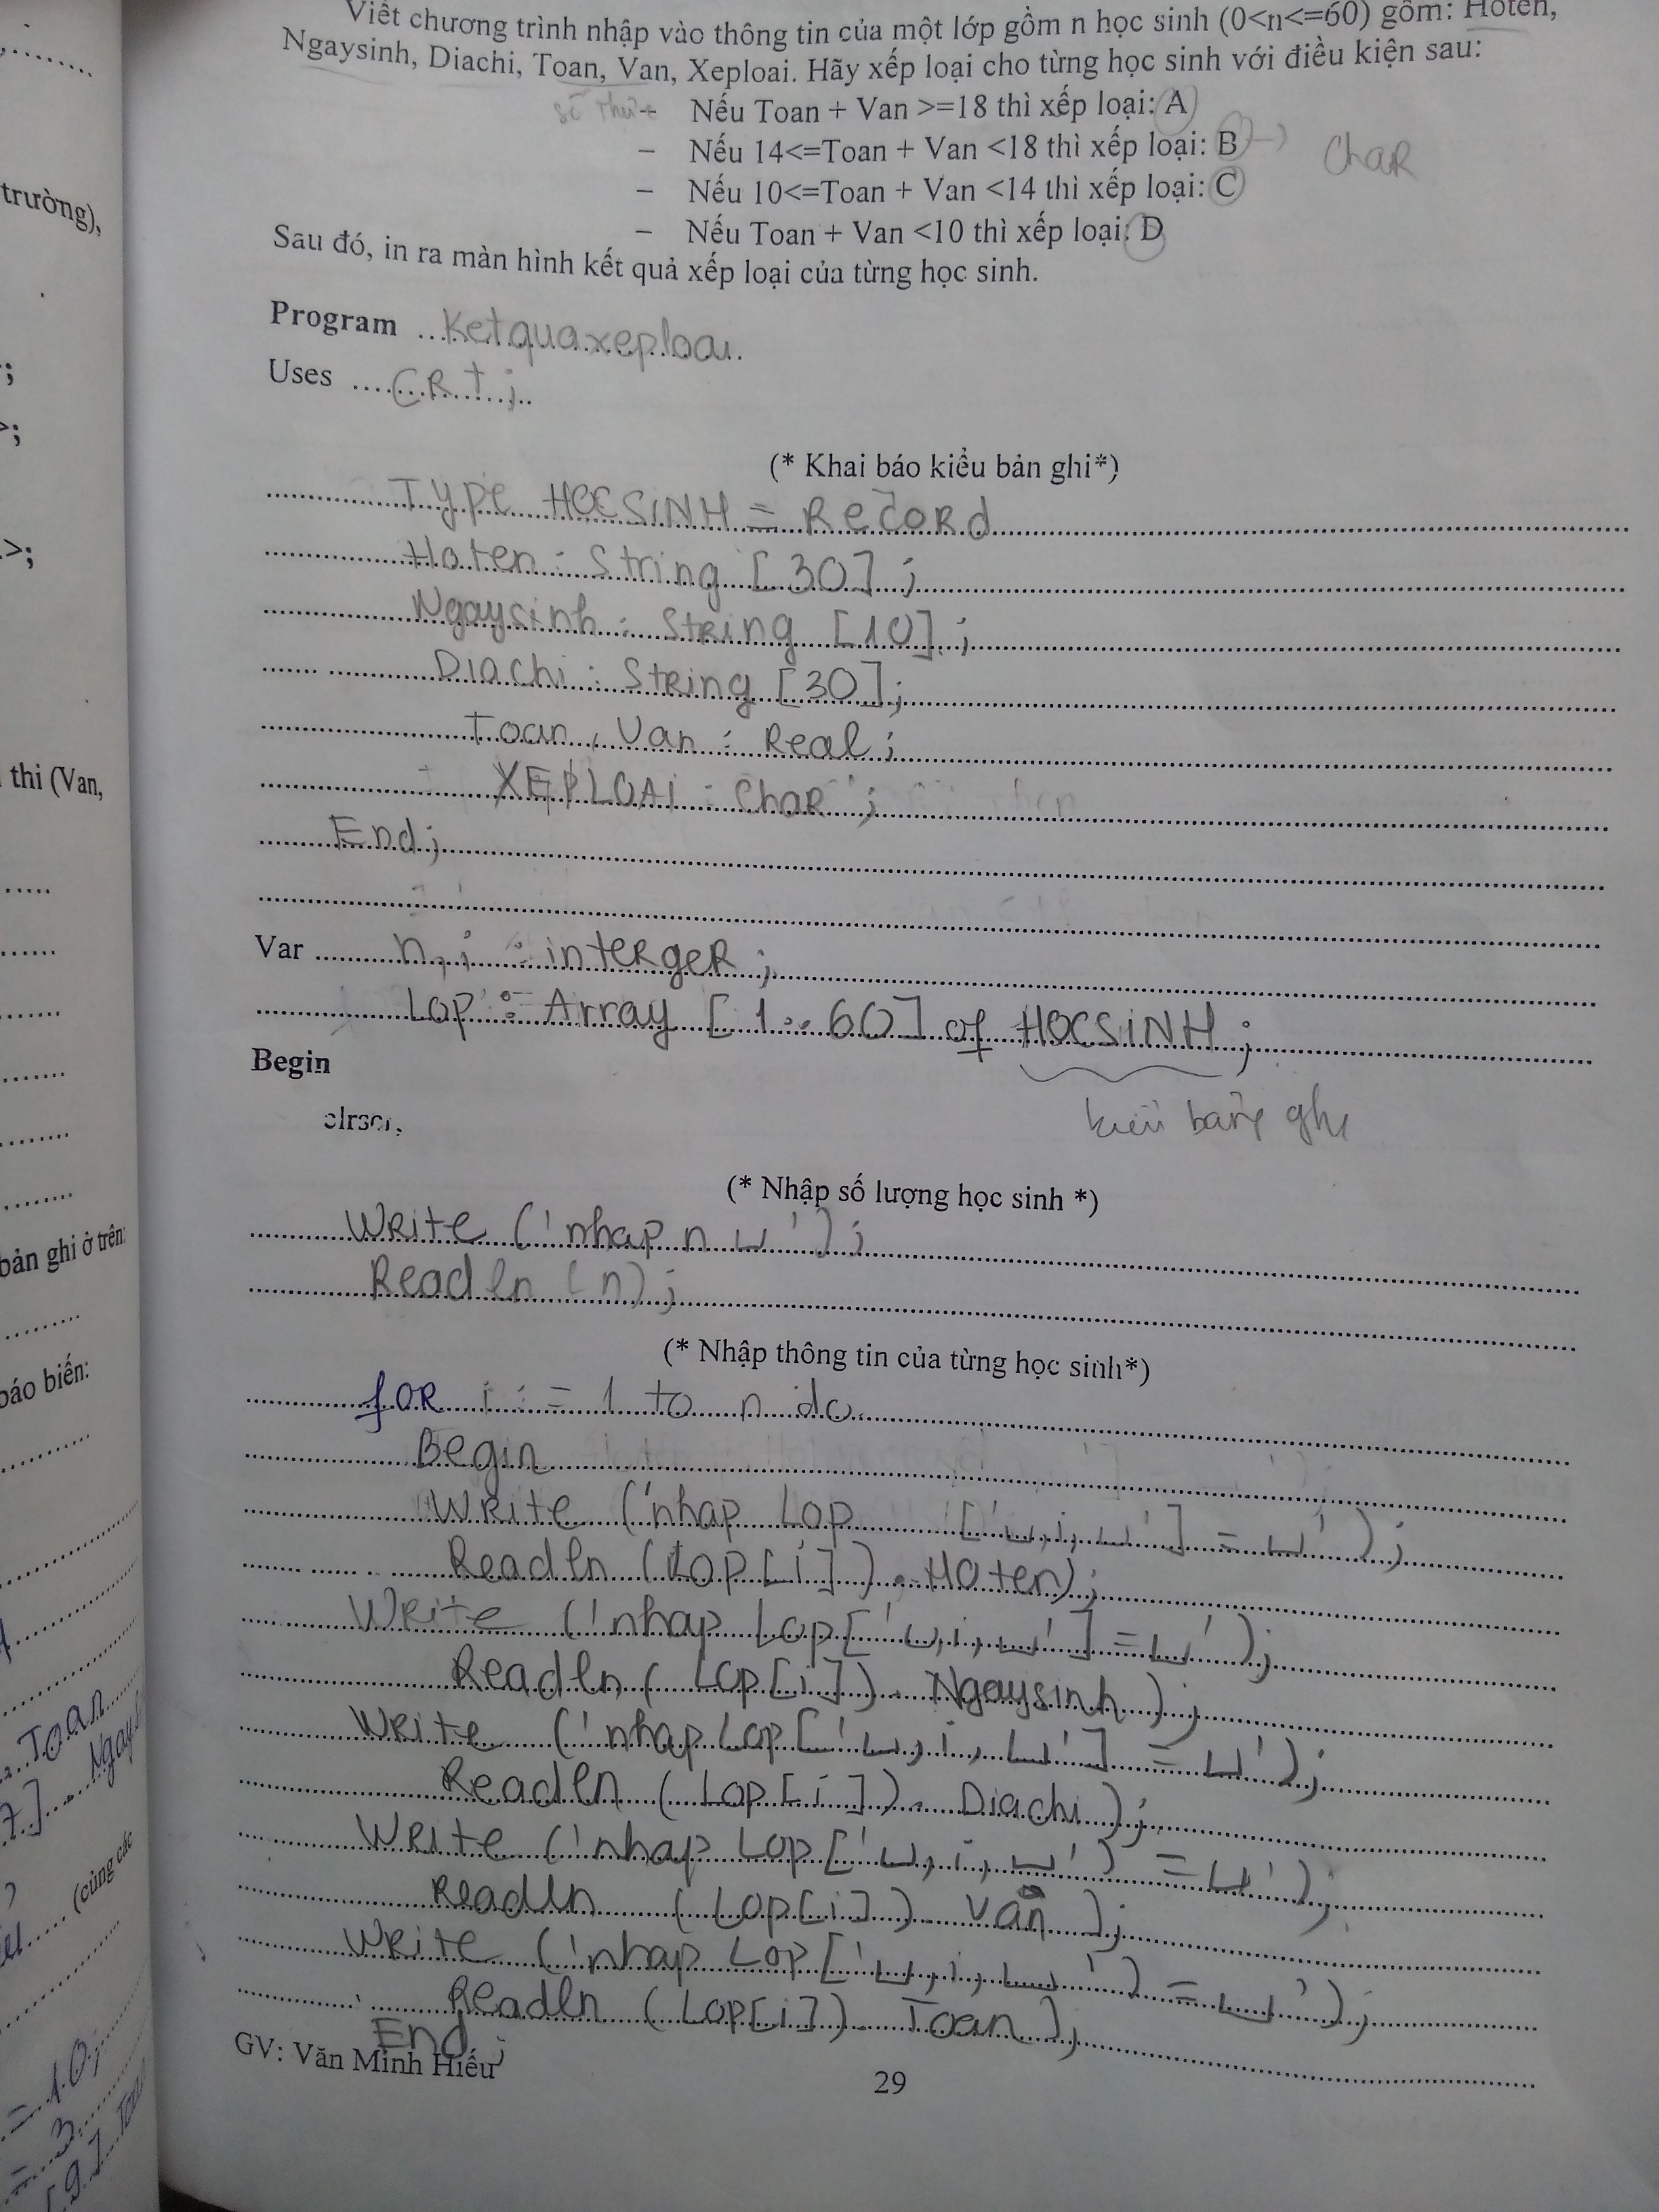 Viết chương trình nhập vào thông tin của một lớp gồm n học sinh (0<n<=60) gồm: Hoten,
Ngaysinh, Diachi, Toan, Van, Xeploai. Hãy xếp loại cho từng học sinh với điều kiện sau:
số thực
- Nếu Toan + Van >=18 thì xếp loại: A
- Nếu 14<=Toan + Van <18 thì xếp loại: B
Char
- Nếu 10<=Toan + Van <14 thì xếp loại: C
- Nếu Toan + Van <10 thì xếp loại: D
Sau đó, in ra màn hình kết quả xếp loại của từng học sinh.
Program Ketquaxeploai
Uses CRt;
(* Khai báo kiểu bản ghi*)
Type HOCSINH = Record
Hoten : String [30];
Ngaysinh : String [10];
Diachi : String [30];
Toan, Van : Real;
XEPLOAI : Char;
End;
Var n, i : interger;
Lop : Array [1..60] of HOCSINH;
Begin
clrscr;
kiểu bảng ghi
(* Nhập số lượng học sinh *)
Write ('nhap n ⌴');
Readln (n);
(* Nhập thông tin của từng học sinh*)
for i := 1 to n do
Begin
Write ('nhap Lop ['⌴,i,⌴'] = ⌴');
Readln (Lop[i]).Hoten);
Write ('nhap Lop['⌴,i,⌴'] =⌴');
Readln( Lop[i]). Ngaysinh);
Write ('nhap Lop['⌴,i,⌴'] =⌴');
Readln (Lop[i]). Diachi);
Write ('nhap Lop['⌴,i,⌴') =⌴');
Readln (Lop[i]). Van );
Write ('nhap Lop['⌴,i,⌴') =⌴');
Readln (Lop[i]). Toan );
End;
GV: Văn Minh Hiếu
29
trường),
;
>;
>;
thi (Van,
bản ghi ở trên:
báo biến:
Toan
7]. Ngay
(cùng các
= 10;
= 3